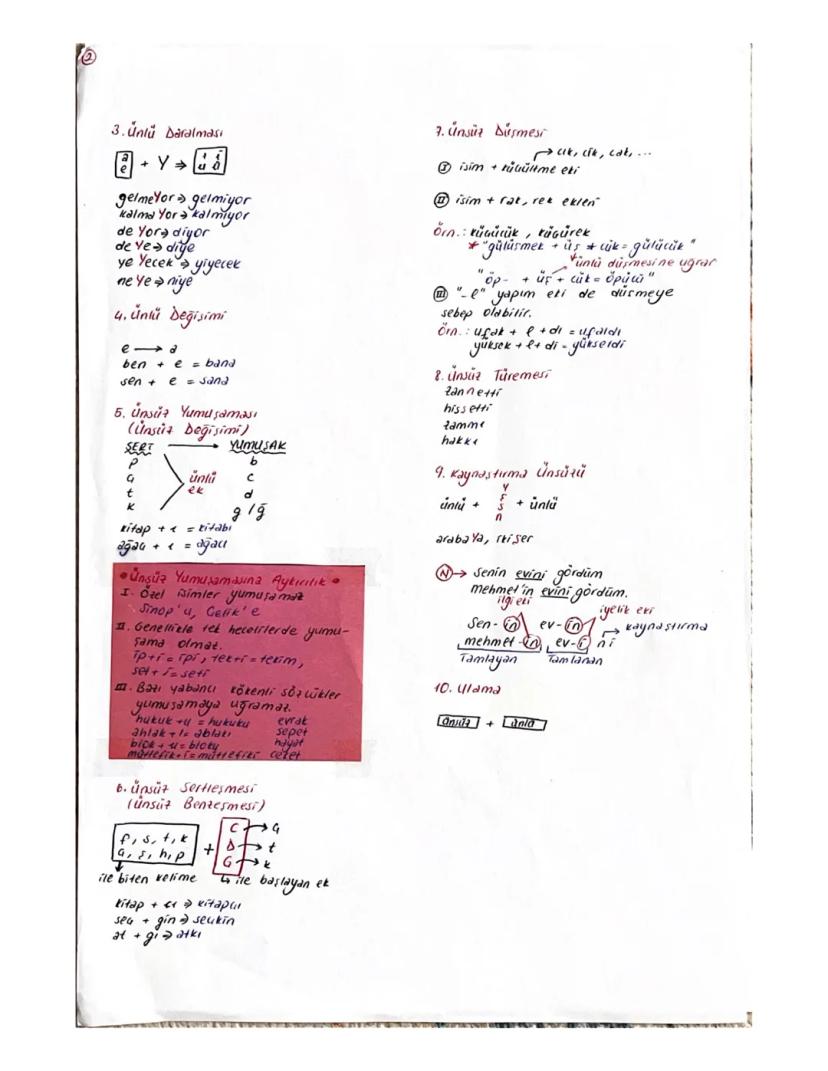 2
3. Ünlü Daralması
a e + Y ⇒ ı i u ü
gelmeYor ⇒ gelmiyor
kalmaYor ⇒ kalmıyor
de Yor ⇒ diyor
de Ye ⇒ diye
ye Yecek ⇒ yiyecek
ne Ye ⇒ niye
4. Ünlü Değişimi
e → a
ben + e = bana
sen + e = sana
5. Ünsüz Yumuşaması
(Ünsüz Değişimi)
SERT → YUMUŞAK
p b
ç ünlü c
t ek d
k g/ğ
kitap + ı = kitabı
ağaç + ı = ağacı
• Ünsüz Yumuşamasına Aykırılık •
I. Özel isimler yumuşamaz
Sinop'u, Çelik'e
II. Genellikle tek hecelilerde yumu-
şama olmaz.
ip+i = ipi, tek+i = tekim,
set + i = seti
III. Bazı yabancı kökenli sözcükler
yumuşamaya uğramaz.
hukuk +u = hukuku evrak
ahlak + ı = ahlakı sepet
blok + u = bloku hayat
müttefik+i = müttefiki cezet
6. Ünsüz Sertleşmesi
(Ünsüz Benzeşmesi)
f, s, t, k C → ç
ç, ş, h, p + D → t
G → k
ile biten kelime ↳ ile başlayan ek
kitap + cı ⇒ kitapçı
seç + gin ⇒ seçkin
at + gı ⇒ atkı
7. Ünsüz Düşmesi
→ cık, cik, cak, ...
I isim + küçültme eki
II isim + rak, rek ekleri
Örn.: küçücük, küçürek
* "gülüşmek + üş + cük = gülücük"
ünlü düşmesine uğrar
"öp- + üş + cük = öpücü"
III "-l" yapım eki de düşmeye
sebep olabilir.
Örn.: ufak + l + dı = ufaldı
yüksek + l + di = yükseldi
8. Ünsüz Türemesi
zannetti
hissetti
zammı
hakkı
9. Kaynaştırma Ünsüzü
y
ş
ünlü + s + ünlü
n
arabaYa, ikiŞer
N → senin evini gördüm
mehmet'in evini gördüm.
ilgi eki iyelik eki
Sen-in ev-in → kaynaştırma
mehmet-in ev-i ni
Tamlayan Tamlanan
10. Ulama
ünsüz + ünlü